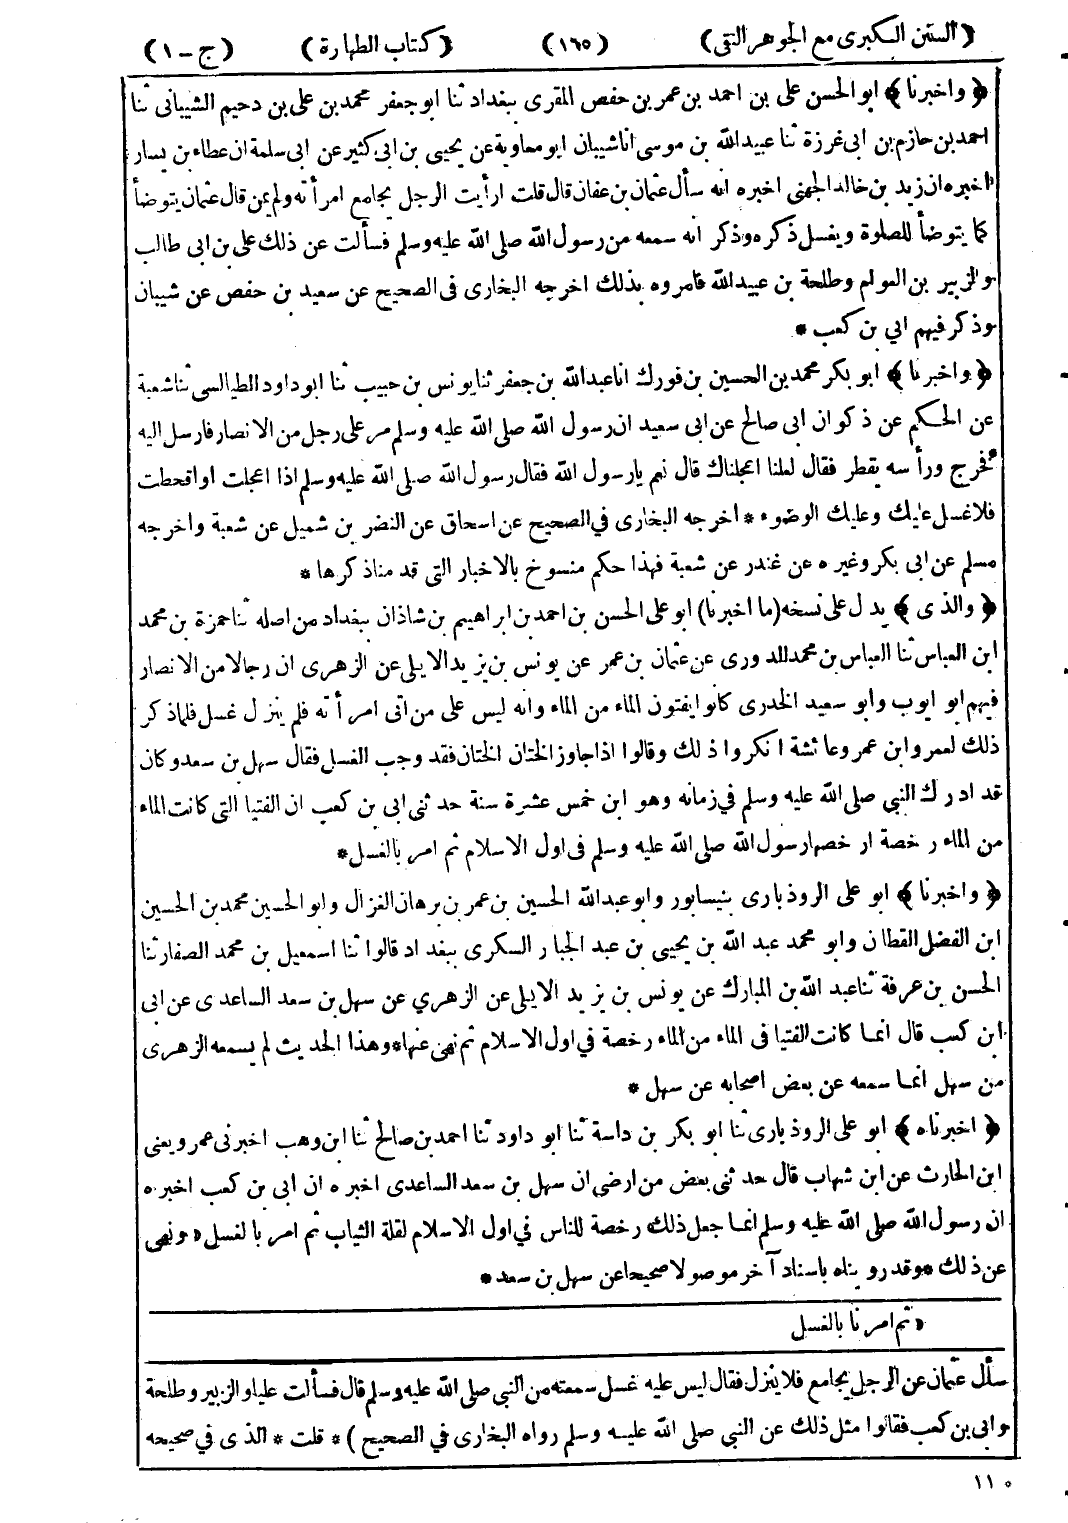 (السنن الكبرى مع الجوهر النقى) (١٦٥) (كتاب الطهارة) (ج - ١)
﴿ واخبرنا ﴾ ابو الحسن على بن احمد بن عمر بن حفص المقرى ببغداد ثنا ابو جعفر محمد بن على بن دحيم الشيبانى ثنا
احمد بن حازم بن ابى غرزة ثنا عبيد الله بن موسى انا شيبان ابو معاوية عن يحيى بن ابى كثير عن ابى سلمة ان عطاء بن يسار
اخبره ان زيد بن خالد الجهنى اخبره انه سأل عثمان بن عفان قال قلت ارأيت الرجل يجامع امرأته ولم يمن قال عثمان يتوضأ
كما يتوضأ للصلوة ويغسل ذكره وذكر انه سمعه من رسول الله صلى الله عليه وسلم فسألت عن ذلك على بن ابى طالب
والزبير بن العوام وطلحة بن عبيد الله فامروه بذلك اخرجه البخارى فى الصحيح عن سعيد بن حفص عن شيبان
وذكر فيهم ابي بن كعب *
﴿ واخبرنا ﴾ ابو بكر محمد بن الحسين بن فورك انا عبد الله بن جعفر ثنا يونس بن حبيب ثنا ابو داود الطيالسى ثنا شعبة
عن الحكم عن ذكوان ابى صالح عن ابى سعيد ان رسول الله صلى الله عليه وسلم مر على رجل من الانصار فارسل اليه
فخرج ورأسه يقطر فقال لعلنا اعجلناك قال نعم يارسول الله فقال رسول الله صلى الله عليه وسلم اذا اعجلت او اقحطت
فلاغسل عليك وعليك الوضوء * اخرجه البخارى في الصحيح عن اسحاق عن النضر بن شميل عن شعبة واخرجه
مسلم عن ابى بكر وغيره عن غندر عن شعبة فهذا حكم منسوخ بالاخبار التى قد مناذكرها *
﴿ والذى ﴾ يدل على نسخه (ما اخبرنا) ابو على الحسن بن احمد بن ابراهيم بن شاذان ببغداد من اصله ثنا حمزة بن محمد
ابن العباس ثنا العباس بن محمد الدورى عن عثمان بن عمر عن يونس بن يزيد الايلى عن الزهرى ان رجالا من الانصار
فيهم ابو ايوب وابو سعيد الخدرى كانوا يفتون الماء من الماء وانه ليس على من اتى امرأته فلم ينزل غسل فلما ذكر
ذلك لعمر وابن عمر وعائشة انكروا ذلك وقالوا اذا جاوز الختان الختان فقد وجب الغسل فقال سهل بن سعد وكان
قد ادرك النبى صلى الله عليه وسلم في زمانه وهو ابن خمس عشرة سنة حدثنى ابى بن كعب ان الفتيا التى كانت الماء
من الماء رخصة ارخصها رسول الله صلى الله عليه وسلم فى اول الاسلام ثم امر بالغسل *
﴿ واخبرنا ﴾ ابو على الروذبارى بنيسابور وابو عبد الله الحسين بن عمر بن برهان الغزال وابو الحسين محمد بن الحسين
ابن الفضل القطان وابو محمد عبد الله بن يحيى بن عبد الجبار السكرى ببغداد قالوا ثنا اسمعيل بن محمد الصفار ثنا
الحسن بن عرفة ثنا عبد الله بن المبارك عن يونس بن يزيد الايلى عن الزهري عن سهل بن سعد الساعدى عن ابى
ابن كعب قال انما كانت الفتيا فى الماء من الماء رخصة في اول الاسلام ثم نهى عنها * وهذا الحديث لم يسمعه الزهرى
من سهل انما سمعه عن بعض اصحابه عن سهل *
﴿ اخبرناه ﴾ ابو على الروذبارى ثنا ابو بكر بن داسة ثنا ابو داود ثنا احمد بن صالح ثنا ابن وهب اخبرنى عمرو يعنى
ابن الحارث عن ابن شهاب قال حدثنى بعض من ارضى ان سهل بن سعد الساعدى اخبره ان ابى بن كعب اخبره
ان رسول الله صلى الله عليه وسلم انما جعل ذلك رخصة للناس في اول الاسلام لقلة الثياب ثم امر بالغسل « ونهى
عن ذلك * وقد رويناه باسناد آخر موصولا صحيحا عن سهل بن سعد *
« ثم امرنا بالغسل
سأل عثمان عن الرجل يجامع فلا ينزل فقال ليس عليه غسل سمعته من النبى صلى الله عليه وسلم قال فسألت عليا والزبير وطلحة
وابى بن كعب فقالوا مثل ذلك عن النبى صلى الله عليه وسلم رواه البخارى في الصحيح ) * قلت * الذى في صحيحه
١١٠